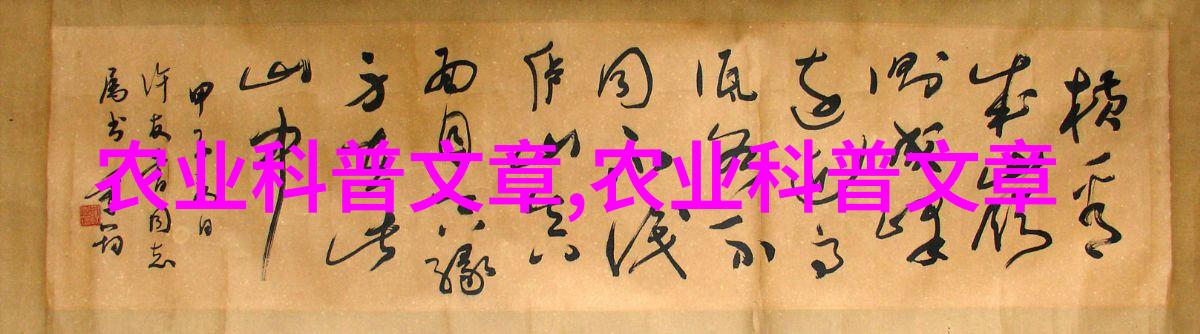 农业科普文章,农业科普文章
横看
成岭
侧成峰
远近高
低各不
同不识
庐山真
面目只缘
身在此
山中